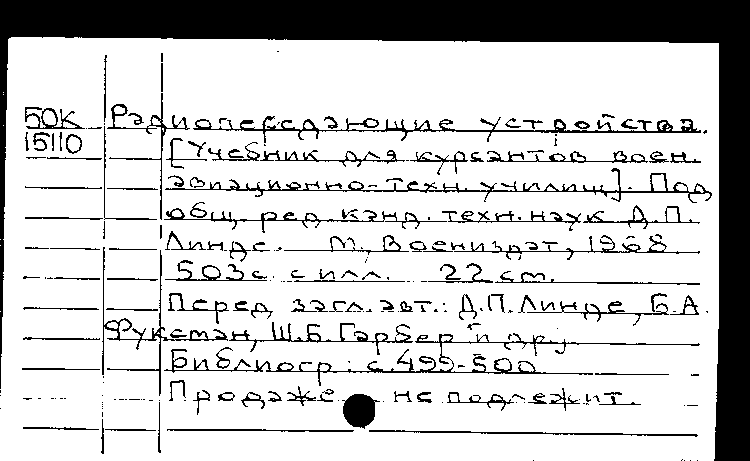 50К Радиопередающие устройства.
15110 [Учебник для курсантов воен.
авиационно-техн. училищ]. Под
общ. ред. канд. техн. наук Д.П.
Линде. М., Воениздат, 1968.
503с. с илл. 22 см.
Перед загл. авт.: Д.П.Линде, Б.А.
Фуксман, Ш.Б.Гарбер и др.
Библиогр: с.499-500
Продаже не подлежит.